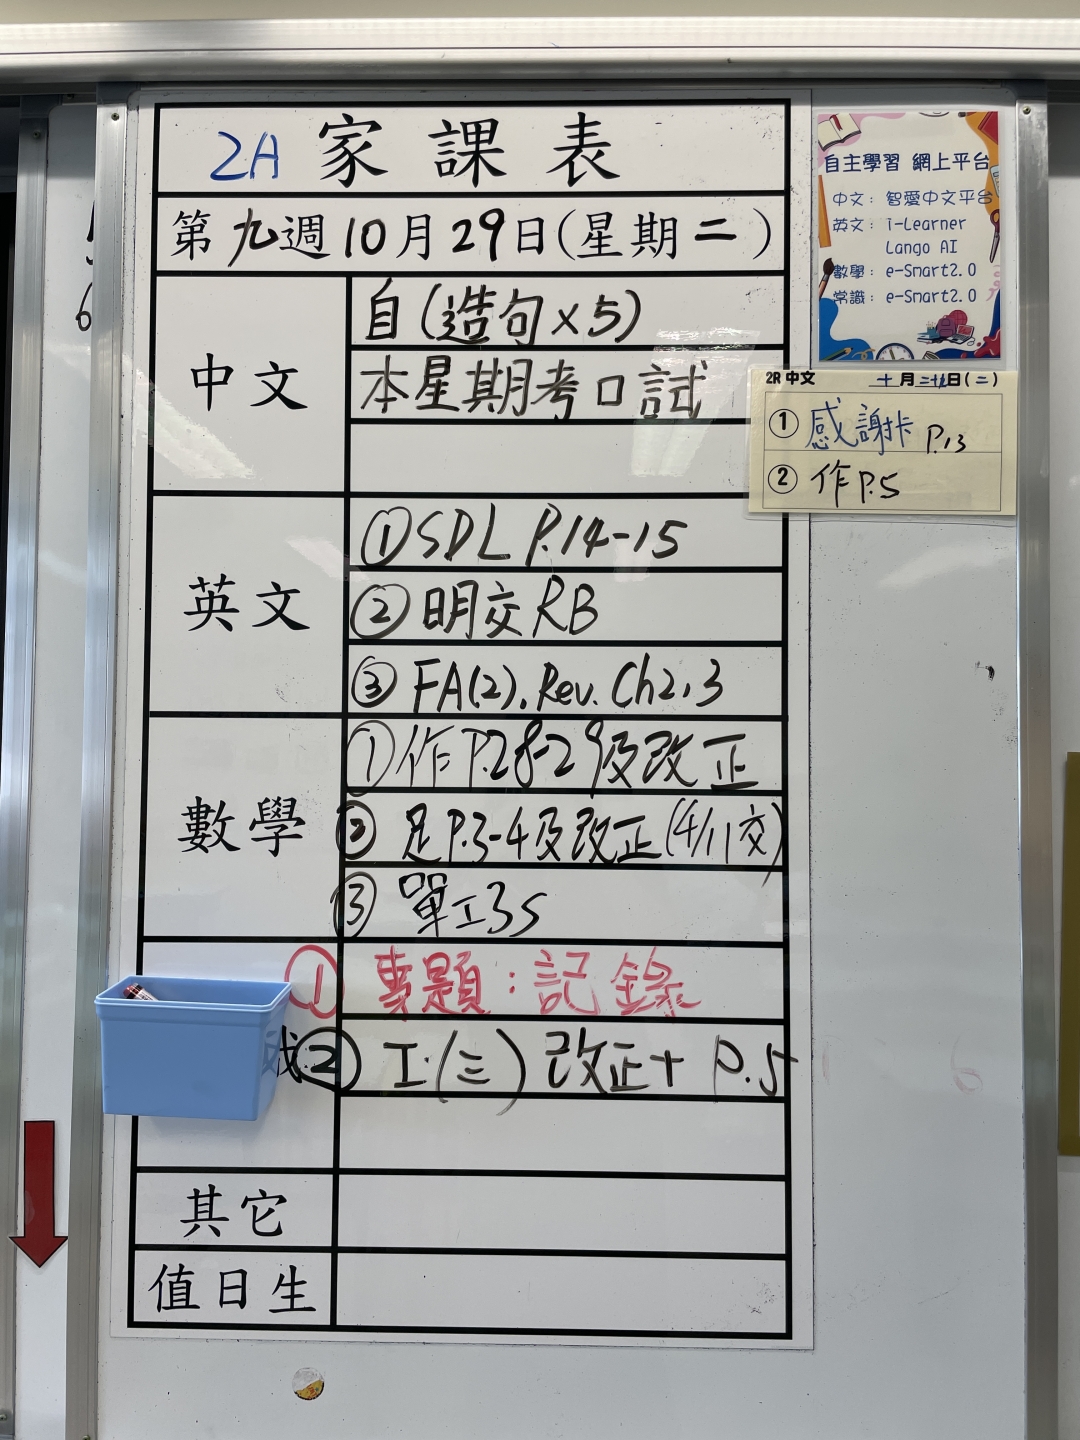 2A 家課表
第九週10月29日(星期二)
中文
自(造句x5)
本星期考口試
英文
①SDL P.14-15
②明交RB
③FA(2). Rev. Ch2,3
數學
①作P.28-29及改正
②足P.3-4及改正(4/11交)
③單工3s
①專題:記錄
②工.(三)改正+P.5
其它
值日生
自主學習 網上平台
中文: 智愛中文平台
英文: i-Learner
Lango AI
數學: e-Smart2.0
常識: e-Smart2.0
2R 中文 十月二十九日(二)
①感謝卡 P.13
②作P.5